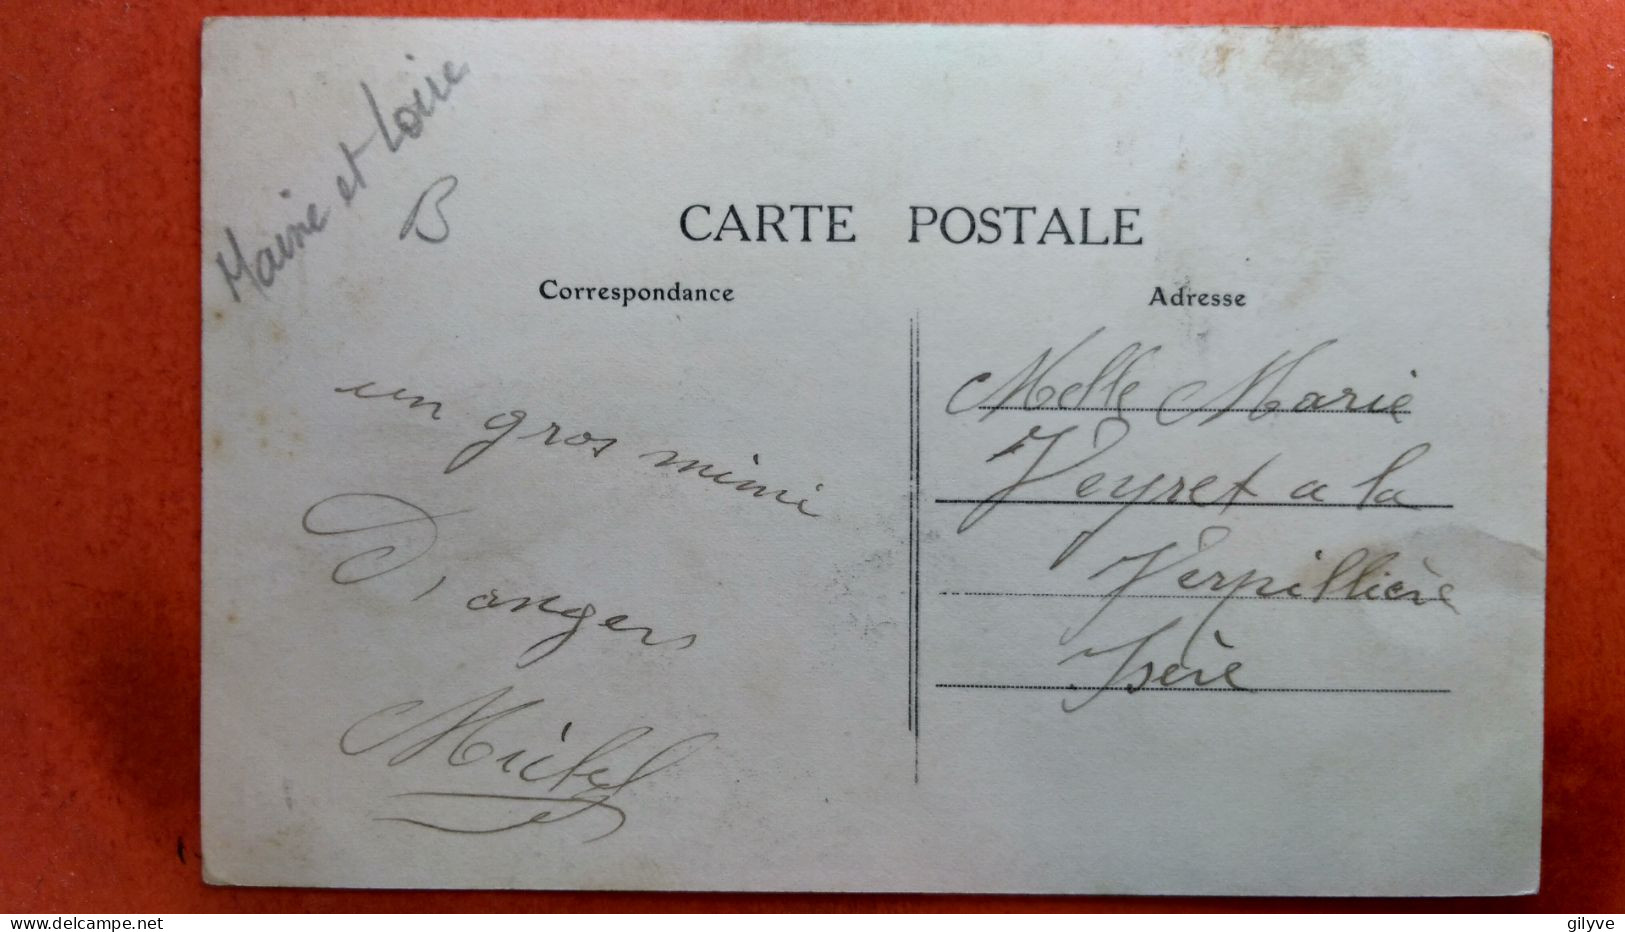 Maine et Loire
B
CARTE POSTALE
Correspondance
Adresse
un gros mimi
D'angers
Melle Marie
Veyret a la
Verpillière
Isère
delcampe.net
gilyve